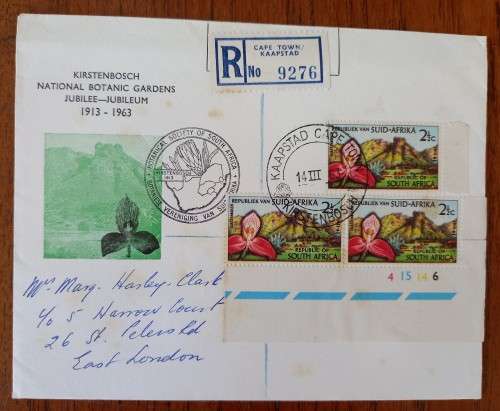 CAPE TOWN/
KAAPSTAD
R No 9276
KIRSTENBOSCH
NATIONAL BOTANIC GARDENS
JUBILEE—JUBILEUM
1913 - 1963
BOTANICAL SOCIETY OF SOUTH AFRICA
KIRSTENBOSCH
1913
VERENIGING VAN
KAAPSTAD CAPE TO
14 III
KIRSTENBOSCH
REPUBLIEK VAN SUID-AFRIKA 2½c
REPUBLIC OF
SOUTH AFRICA
REPUBLIEK VAN SUID-AFRIKA 2½c
REPUBLIC OF
SOUTH AFRICA
REPUBLIEK VAN SUID-AFRIKA 2½c
REPUBLIC OF
SOUTH AFRICA
4 15 14 6
Mrs Mary Hasley-Clark
c/o 5 Harrow Court
26 St. Peters Rd
East London